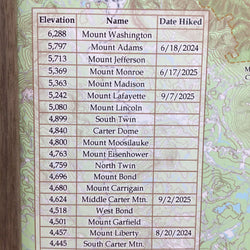 Elevation Name Date Hiked
6,288 Mount Washington
5,797 Mount Adams 6/18/2024
5,713 Mount Jefferson
5,369 Mount Monroe 6/17/2025
5,363 Mount Madison
5,242 Mount Lafayette 9/7/2025
5,080 Mount Lincoln
4,899 South Twin
4,840 Carter Dome
4,800 Mount Moosilauke
4,763 Mount Eisenhower
4,759 North Twin
4,696 Mount Bond
4,680 Mount Carrigain
4,624 Middle Carter Mtn. 9/2/2025
4,518 West Bond
4,501 Mount Garfield
4,457 Mount Liberty 8/20/2024
4,445 South Carter Mtn.